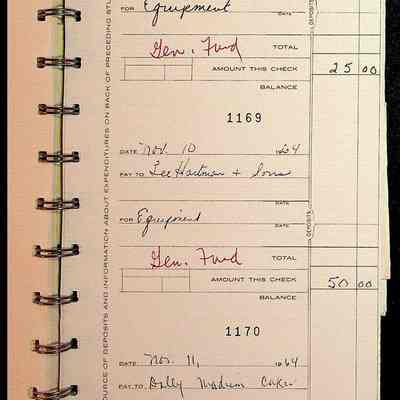 FOR Equipment
DATE
DEPOSITS
Gen. Fund TOTAL
AMOUNT THIS CHECK 25 00
BALANCE
1169
DATE Nov. 10 1964
PAY TO Lee Hartman + Sons
DATE
FOR Equipment
DEPOSITS
Gen. Fund TOTAL
AMOUNT THIS CHECK 50 00
BALANCE
1170
DATE Nov. 11, 1964
PAY TO Dolly Madison Cakes
OURCE OF DEPOSITS AND INFORMATION ABOUT EXPENDITURES ON BACK OF PRECEDING STU